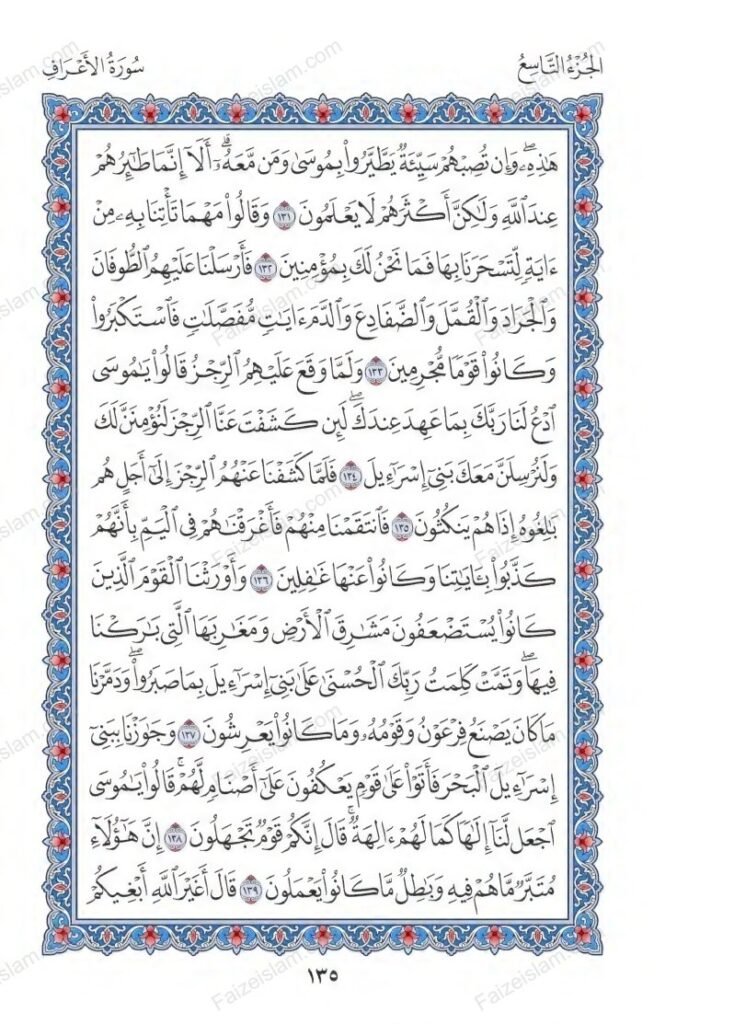 الجُزْءُ التَّاسِعُ سُورَةُ الأَعْرَافِ
هَٰذِهِۦۖ وَإِن تُصِبْهُمْ سَيِّئَةٌ يَطَّيَّرُوا۟ بِمُوسَىٰ وَمَن مَّعَهُۥٓۗ أَلَآ إِنَّمَا طَٰٓئِرُهُمْ
عِندَ ٱللَّهِ وَلَٰكِنَّ أَكْثَرَهُمْ لَا يَعْلَمُونَ ١٣١ وَقَالُوا۟ مَهْمَا تَأْتِنَا بِهِۦ مِنْ
ءَايَةٍ لِّتَسْحَرَنَا بِهَا فَمَا نَحْنُ لَكَ بِمُؤْمِنِينَ ١٣٢ فَأَرْسَلْنَا عَلَيْهِمُ ٱلطُّوفَانَ
وَٱلْجَرَادَ وَٱلْقُمَّلَ وَٱلضَّفَادِعَ وَٱلدَّمَ ءَايَٰتٍ مُّفَصَّلَٰتٍ فَٱسْتَكْبَرُوا۟
وَكَانُوا۟ قَوْمًا مُّجْرِمِينَ ١٣٣ وَلَمَّا وَقَعَ عَلَيْهِمُ ٱلرِّجْزُ قَالُوا۟ يَٰمُوسَى
ٱدْعُ لَنَا رَبَّكَ بِمَا عَهِدَ عِندَكَۖ لَئِن كَشَفْتَ عَنَّا ٱلرِّجْزَ لَنُؤْمِنَنَّ لَكَ
وَلَنُرْسِلَنَّ مَعَكَ بَنِىٓ إِسْرَٰٓءِيلَ ١٣٤ فَلَمَّا كَشَفْنَا عَنْهُمُ ٱلرِّجْزَ إِلَىٰٓ أَجَلٍ هُم
بَٰلِغُوهُ إِذَا هُمْ يَنكُثُونَ ١٣٥ فَٱنتَقَمْنَا مِنْهُمْ فَأَغْرَقْنَٰهُمْ فِى ٱلْيَمِّ بِأَنَّهُمْ
كَذَّبُوا۟ بِـَٔايَٰتِنَا وَكَانُوا۟ عَنْهَا غَٰفِلِينَ ١٣٦ وَأَوْرَثْنَا ٱلْقَوْمَ ٱلَّذِينَ
كَانُوا۟ يُسْتَضْعَفُونَ مَشَٰرِقَ ٱلْأَرْضِ وَمَغَٰرِبَهَا ٱلَّتِى بَٰرَكْنَا
فِيهَاۖ وَتَمَّتْ كَلِمَتُ رَبِّكَ ٱلْحُسْنَىٰ عَلَىٰ بَنِىٓ إِسْرَٰٓءِيلَ بِمَا صَبَرُوا۟ۖ وَدَمَّرْنَا
مَا كَانَ يَصْنَعُ فِرْعَوْنُ وَقَوْمُهُۥ وَمَا كَانُوا۟ يَعْرِشُونَ ١٣٧ وَجَٰوَزْنَا بِبَنِىٓ
إِسْرَٰٓءِيلَ ٱلْبَحْرَ فَأَتَوْا۟ عَلَىٰ قَوْمٍ يَعْكُفُونَ عَلَىٰٓ أَصْنَامٍ لَّهُمْۚ قَالُوا۟ يَٰمُوسَى
ٱجْعَل لَّنَآ إِلَٰهًا كَمَا لَهُمْ ءَالِهَةٌۚ قَالَ إِنَّكُمْ قَوْمٌ تَجْهَلُونَ ١٣٨ إِنَّ هَٰٓؤُلَآءِ
مُتَبَّرٌ مَّا هُمْ فِيهِ وَبَٰطِلٌ مَّا كَانُوا۟ يَعْمَلُونَ ١٣٩ قَالَ أَغَيْرَ ٱللَّهِ أَبْغِيكُمْ
١٣٥
Faizeislam.com